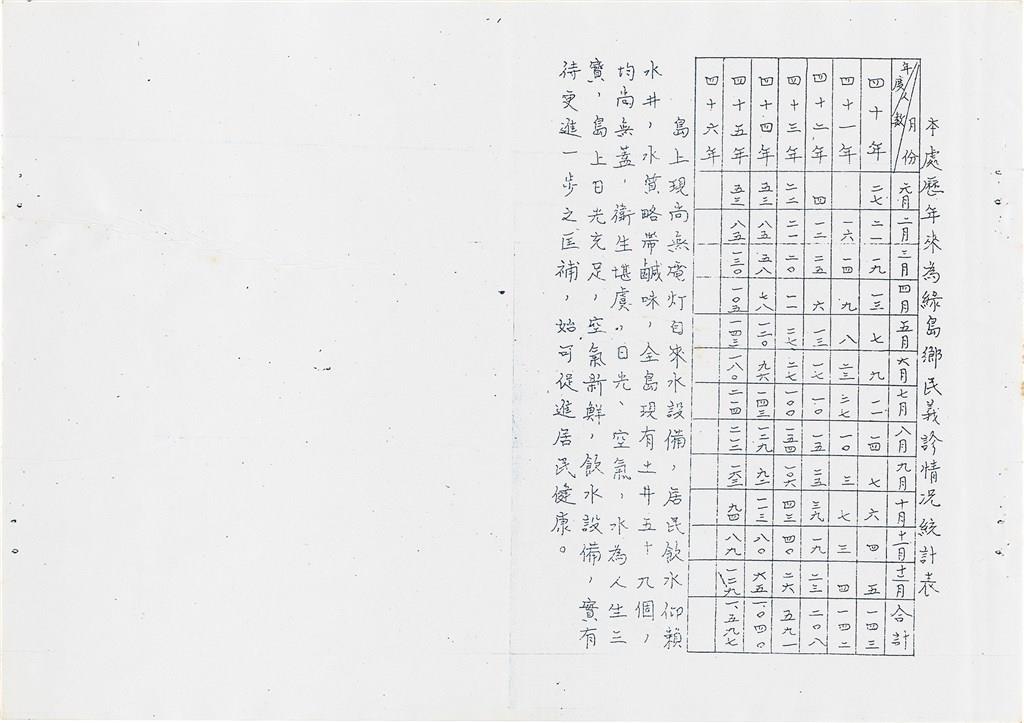 本處歷年來為綠島鄉民義診情況統計表
年度 人數 月份 元月 二月 三月 四月 五月 六月 七月 八月 九月 十月 十一月 十二月 合計
四十年 二七 二一 一九 一三 七 九 一一 一四 七 六 四 五 一四三
四十一年 一六 一四 九 八 二三 二七 一〇 三 七 三 四 一四二
四十二年 四 一二 二五 六 一三 一七 一〇 一五 二五 三九 一九 二三 二〇八
四十三年 二二 二一 二〇 一一 二七 二七 一〇〇 一五四 一〇六 四三 四〇 二六 五九一
四十四年 五三 八五 五八 七八 一二〇 九六 一四三 一二九 九二 一一三 八〇 六五 一、〇四〇
四十五年 五三 八五 一三〇 一〇五 一四三 一八〇 二一四 二一二 一六三 九四 八九 一二九 一、五九七
四十六年
島上現尚無電灯自來水設備，居民飲水仰賴
水井，水質略帶鹹味，全島現有土井五十九個，
均尚無蓋，衛生堪虞。日光、空氣，水為人生三
寶，島上日光充足，空氣新鮮，飲水設備，實有
待更進一步之匡補，始可促進居民健康。